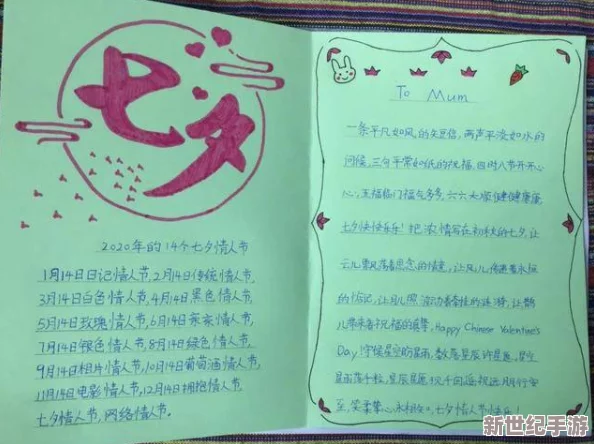 七夕
2020年的14个七夕情人节
1月14日日记情人节,2月14日传统情人节,
3月14日白色情人节,4月14日黑色情人节,
5月14日玫瑰情人节,6月14日亲亲情人节,
7月14日银色情人节,8月14日绿色情人节,
9月14日相片情人节,10月14日葡萄酒情人节,
11月14日电影情人节,12月14日拥抱情人节,
七夕情人节,网络情人节.
To Mum
一条平凡如风的短信,两声平淡如水的
问候,三句平常如纸的祝福,四时八节开开心
心,五福临门福气多多,六六大顺健健康康,
七夕快快乐乐!把浓情写在初秋的七夕,让
云儿带着思念的情意,让风儿传递着永恒
的惦记,让月儿照
儿带来着祝福的 Happy Chinese Valentine's
Day 守候星空防星雨,数落星辰许星愿,星空
星雨落千粒,星辰星愿祝千向遥,祝远朋行安
至,笑柔挚心永相似.七夕情人节快乐
新世纪手游